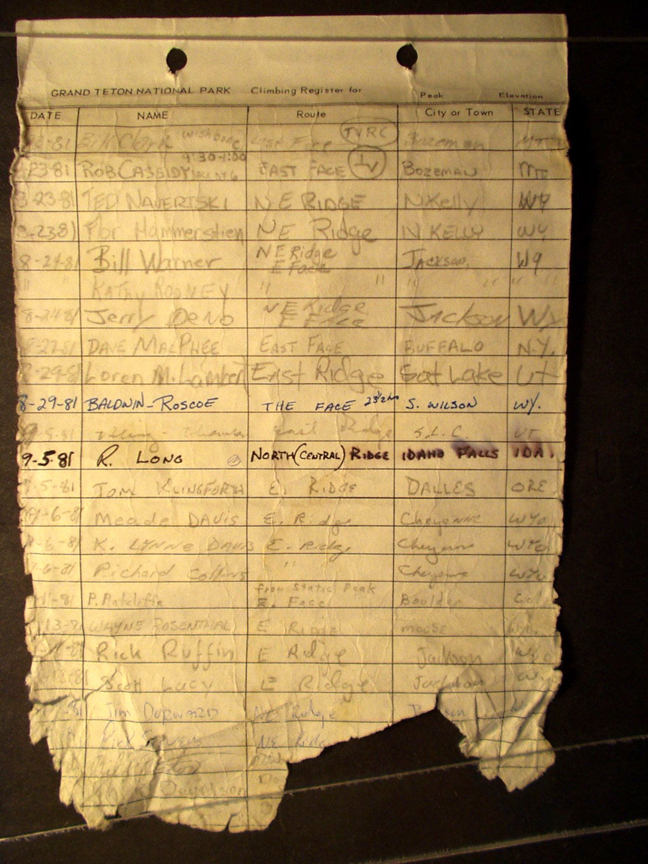 GRAND TETON NATIONAL PARK Climbing Register for Peak Elevation
DATE NAME Route City or Town STATE
-81 Bill Clark Wishbone East Face TVRC Bozeman MT
9:30-1:00
-23-81 ROB CASSIDY EAST FACE IV BOZEMAN MT
8-23-81 TED NAVERISKI N E RIDGE N Kelly WY
8-23-81 Flor Hammerstien N E Ridge N KELLY WY
N E Ridge
8-29-81 Bill Warner E Face JACKSON, WY
" KATHY ROONEY " " " "
N E Ridge
8-29-81 Jerry DeNo E Face Jackson Wy
8-27-81 DAVE MACPHEE EAST FACE BUFFALO N.Y.
8-29-81 Loren M. Lambert East Ridge Salt Lake UT
8-29-81 BALDWIN-ROSCOE THE FACE 2 3 1/2 hrs S. WILSON WY.
9-5-81 East Ridge S.L.C. UT
9-5-81 R. LONG NORTH (CENTRAL) RIDGE IDAHO FALLS IDA.
9-5-81 TOM KLINGFORTH E. RIDGE DALLES ORE
9-6-81 Meade DAVIS E. Ridge Cheyenne WYO
9-6-81 K. LYNNE DAVIS E. Ridge Cheyenn WYO
9-6-81 Richard Collins " Cheyenne WYO
from Static Peak
-81 P. Ratcliffe E. Face Boulder Col
WAYNE ROSENTHAL E Ridge moose
Rick Ruffin E Ridge Jackson
-81 Scott Lucy E Ridge Jackson
-81 Jim DORWARD NE Ridge
Rick NE Ridge
Davidson